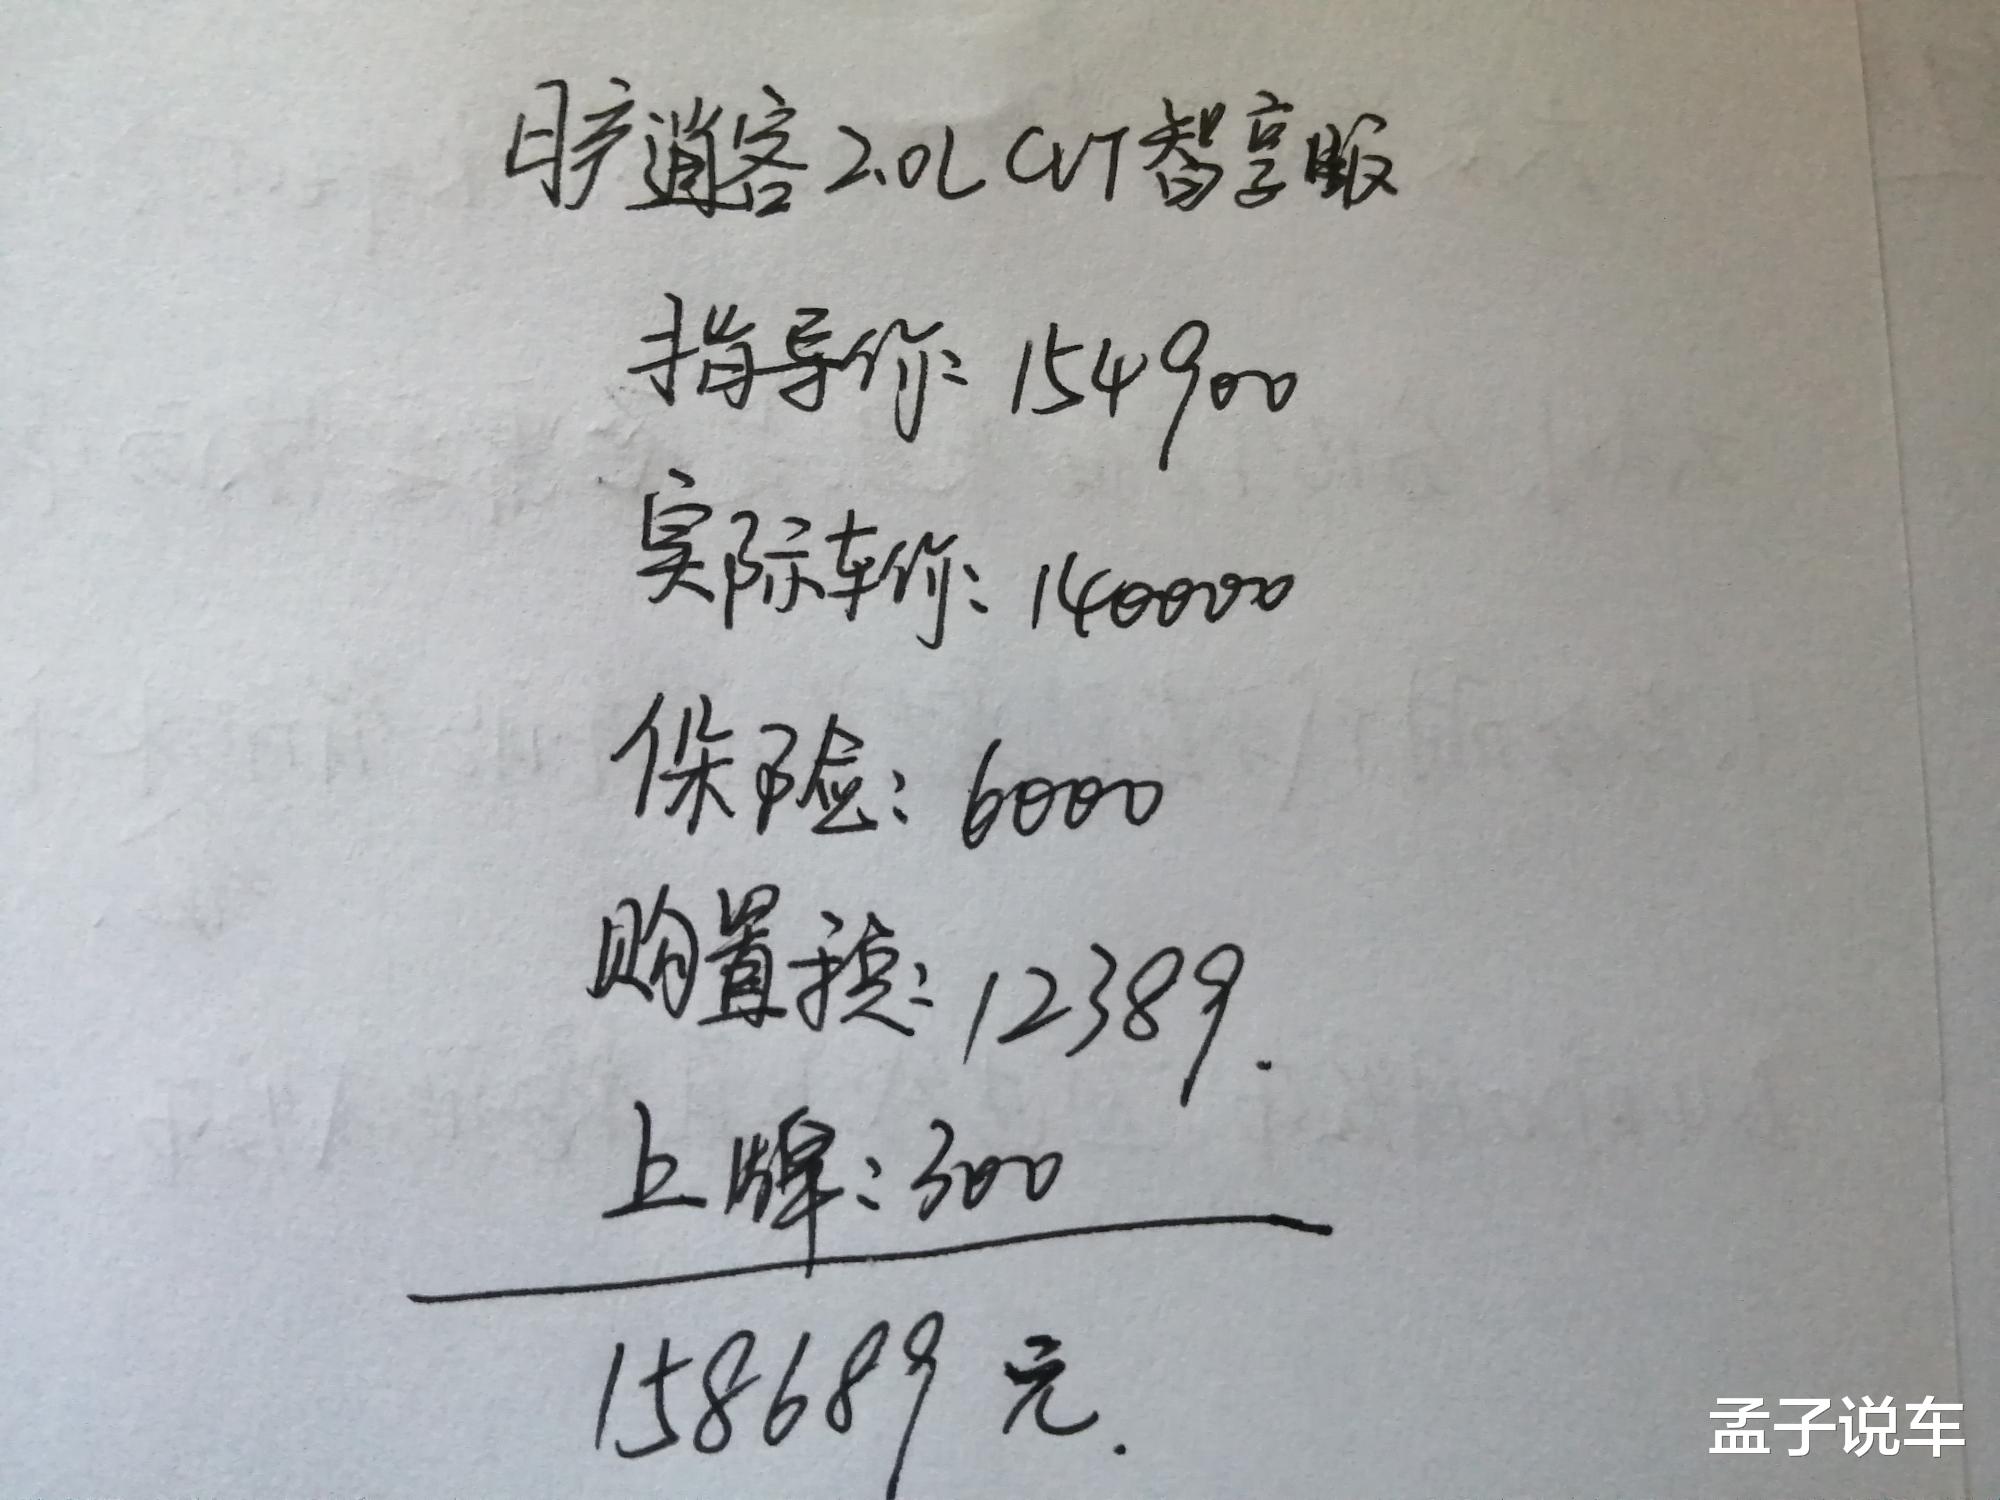 日产逍客2.0L CVT智享版
指导价:154900
实际车价:140000
保险:6000
购置税:12389.
上牌:300
158689元.
孟子说车